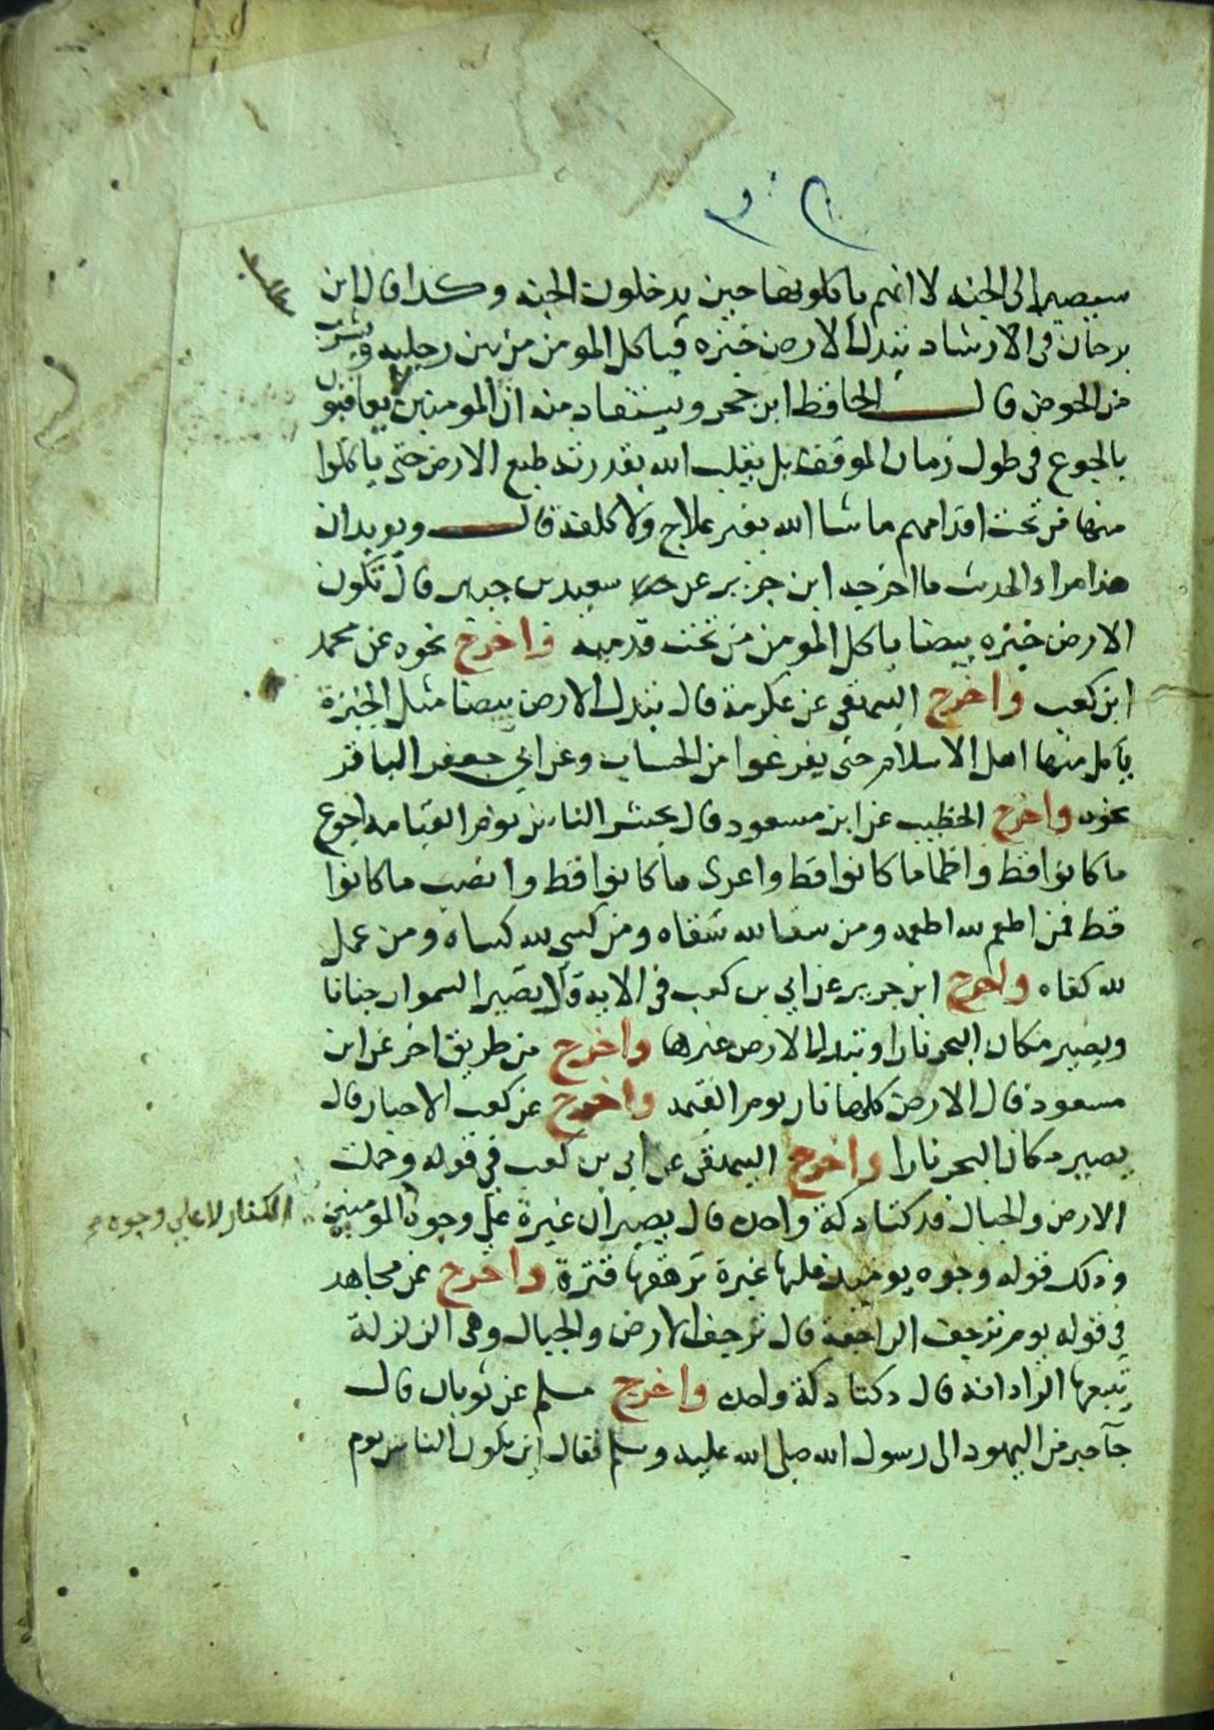 سيصير الى الجنه لا انهم ياكلونها حين يدخلون الجنه وكذا قال ابن
برجان فى الارشاد تبدل الارض خبزه فياكل المومن من بين رجليه ويشرب
من الحوض قال الحافظ ابن حجر ويستفاد منه ان المومنين لا يعاقبون
بالجوع فى طول زمان الموقف بل يقلب الله بقدرته طبع الارض حتى ياكلوا
منها من تحت اقدامهم ما شا الله بغير علاج ولا كلفة قال ويويد ان
هذا مراد الحديث ما اخرجه ابن جرير عن سعيد بن جبير قال تكون
الارض خبزه بيضا ياكل المومن من تحت قدميه واخرج نحوه عن محمد
ابن كعب واخرج البيهقى عن عكرمة قال تبدل الارض بيضا مثل الخبزة
ياكل منها اهل الاسلام حتى يفرغوا من الحساب وعن ابي جعفر الباقر
نحوه واخرج الخطيب عن ابن مسعود قال يحشر الناس يوم القيامه اجوع
ما كانوا قط واظما ما كانوا قط واعرى ما كانوا قط وانصب ما كانوا
قط فمن اطعم لله اطعمه ومن سقا لله سقاه ومن كسى لله كساه ومن عمل
لله كفاه واخرج ابن جرير عن ابي بن كعب فى الايه قال تصير السموات جنانا
ويصير مكان البحر نارا وتبدل الارض غيرها واخرج من طريق اخر عن ابن
مسعود قال الارض كلها نار يوم القيمه واخرج عن كعب الاحبار قال
يصير مكان البحر نارا واخرج البيهقى عن ابي بن كعب في قوله وحملت
الارض والجبال فدكتا دكة واحده قال يصيران غبرة على وجوه المومنين
الكفار لا على وجوه
وذلك قوله وجوه يوميذ عليها غبرة ترهقها قترة واخرج عن مجاهد
في قوله يوم ترجف الراجفة قال ترجف الارض والجبال وهى الزلزلة
تتبعها الرادفة قال دكتا دكة واحده واخرج مسلم عن ثوبان قال
جآ حبر من اليهود الى رسول الله صلى الله عليه وسلم فقال اين يكون الناس يوم